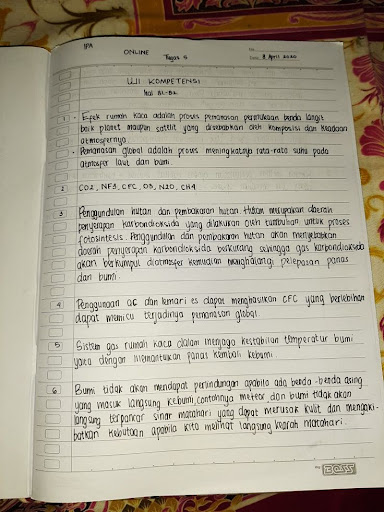 IPA
ONLINE
Tugas 5
No.
Date. 8 April 2020
UJI KOMPETENSI
hal 81-82
1 • Efek rumah kaca adalah proses pemanasan permukaan benda langit
baik planet maupun satelit yang disebabkan oleh komposisi dan keadaan
atmosfernya.
• Pemanasan global adalah proses meningkatnya rata-rata suhu pada
atmosfer laut dan bumi.
2 CO2, NF3, CFC, O3, N2O, CH4
3 Penggundulan hutan dan pembakaran hutan. Hutan merupakan daerah
penyerapan karbondioksida yang dilakukan oleh tumbuhan untuk proses
fotosintesis. Penggundulan dan pembakaran hutan akan menyebabkan
daerah penyerapan karbondioksida berkurang sehingga gas karbondioksida
akan berkumpul diatmosfer kemudian menghalangi pelepasan panas
dari bumi.
4 Penggunaan ac dan lemari es dapat menghasilkan CFC yang berlebihan
dapat memicu terjadinya pemanasan global.
5 Sistem gas rumah kaca dalam menjaga kestabilan temperatur bumi
yaitu dengan memantulkan panas kembali kebumi.
6 Bumi tidak akan mendapat perlindungan apabila ada benda-benda asing
yang masuk langsung kebumi, contohnya meteor dan bumi tidak akan
langsung terpapar sinar matahari yang dapat merusak kulit dan mengaki-
batkan kebutaan apabila kita melihat langsung kearah matahari.
BOSS